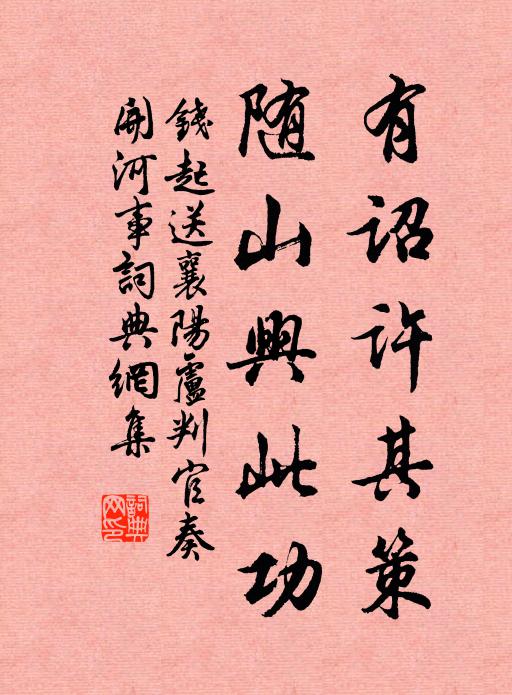 有詔許其策
随山興此功
錢起送襄陽盧判官奏
開河事詞典網集
詞典
网印